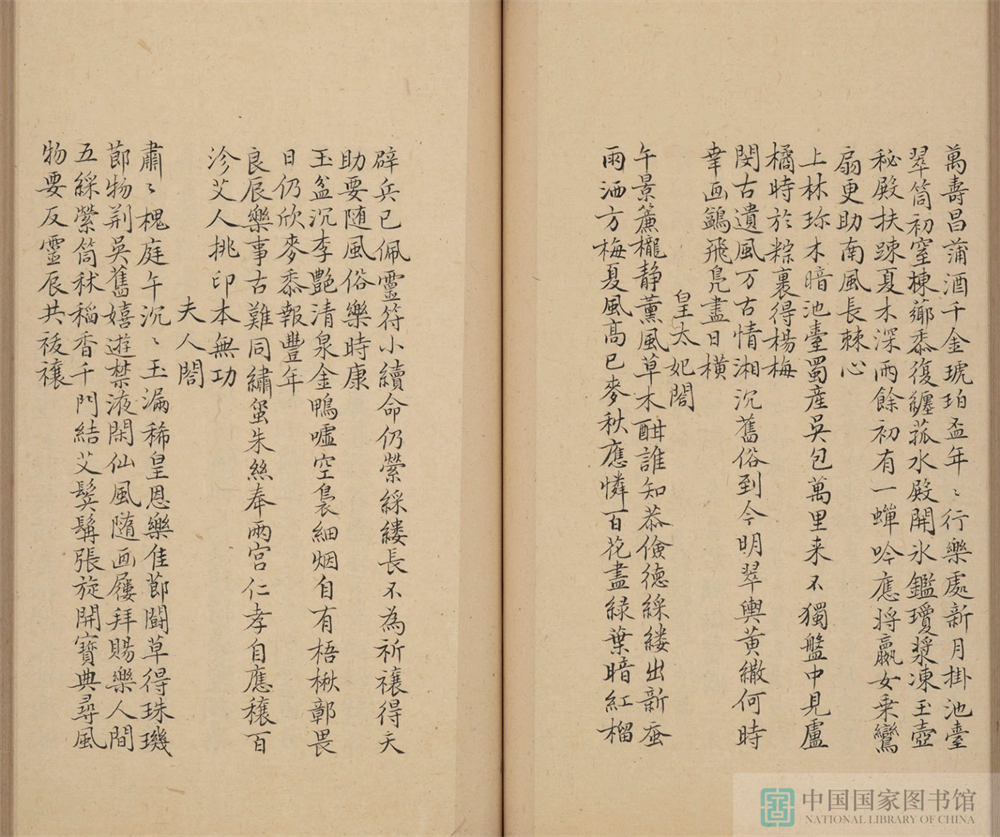 萬壽昌蒲酒千金琥珀盃年〻行樂處新月掛池臺
翠筒初窒楝薌黍復纏菰水殿開氷鑑瓊漿凍玉壺
秘殿扶踈夏木深雨餘初有一蟬吟應將嬴女乗鸞
扇更助南風長棘心
上林珎木暗池臺蜀産吳包萬里来不獨盤中見盧
橘時於粽裏得楊梅
閔古遺風万古情湘沉舊俗到今明翠輿黄繖何時
幸画鷁飛鳬盡日橫
皇太妃閤
午景簾櫳静薰風草木酣誰知恭儉德綵縷出新蚕
雨洒方梅夏風髙已麥秋應憐百花盡緑葉暗紅榴
辟兵已佩靈符小續命仍縈綵縷長不為祈禳得天
助要随風俗樂時康
玉盆沉李艷清泉金鴨噓空裊細烟自有梧楸鄣畏
日仍欣麥黍報豐年
良辰樂事古難同繡蠒朱絲奉兩宫仁孝自應穰百
沴艾人桃印本無功
夫人閤
肅〻槐庭午沉〻玉漏稀皇恩樂佳節鬬草得珠璣
節物荆吳舊嬉遊禁液閑仙風随画屨拜賜樂人間
五綵縈筒秫稻香千門結艾鬓髯張旋開寳典尋風
物要反靈辰共祓禳
中国国家图书馆
NATIONAL LIBRARY OF CHINA